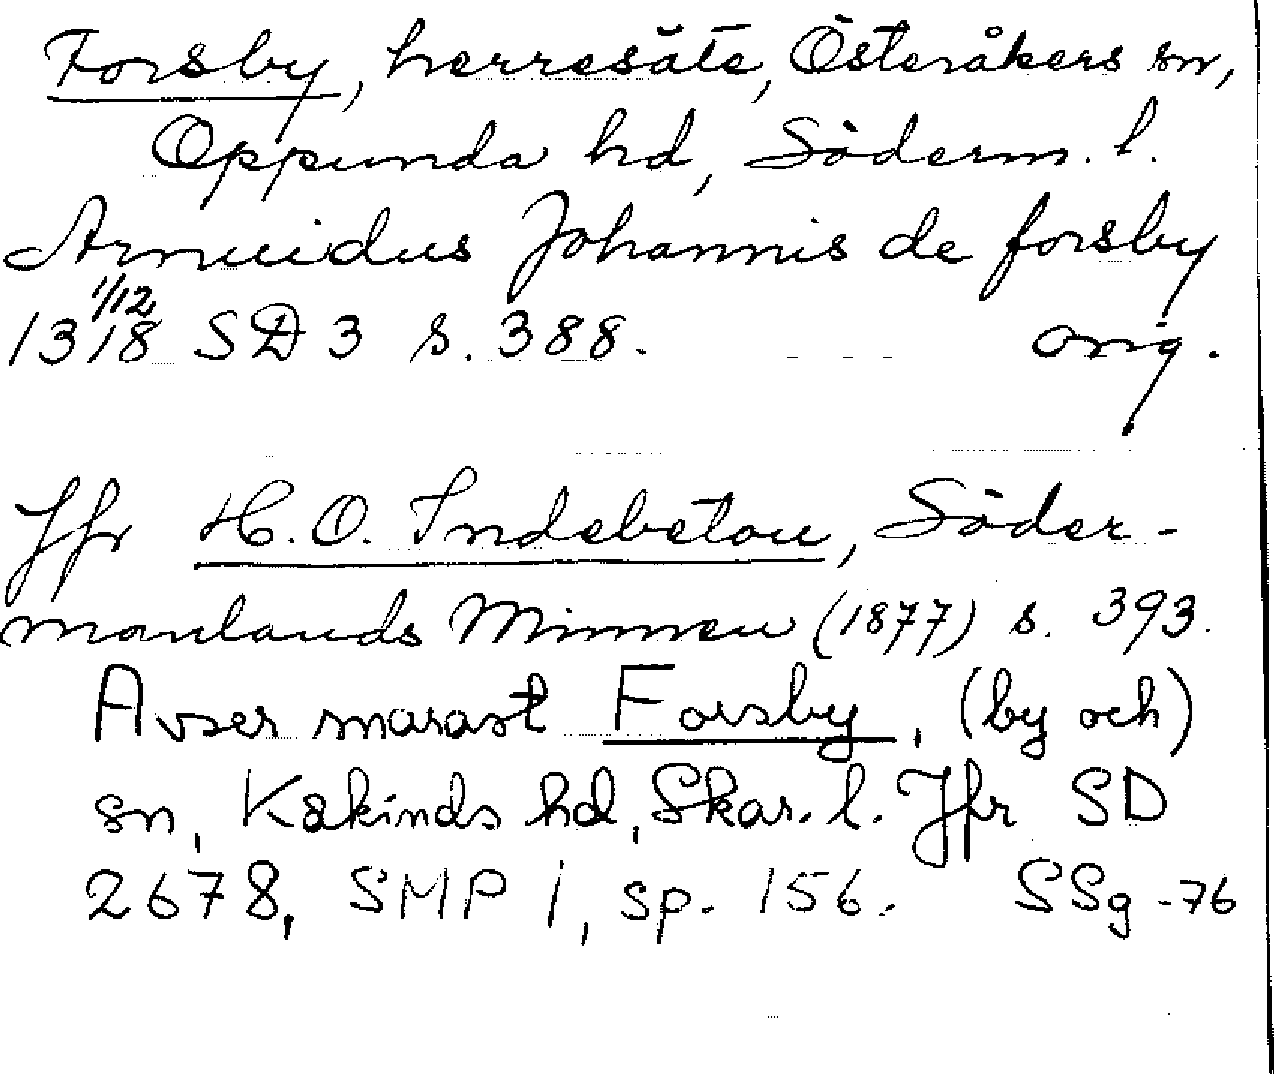 Forsby, herresäte, Österåkers sn,
Oppunda hd, Söderm. l.
Arnuidus Johannis de forsby
1318 1/12 SD 3 s. 388. orig.
Jfr H. O. Indebetou, Söder-
manlands Minnen (1877) s. 393.
Avser snarast Forsby, (by och)
sn, Kåkinds hd, Skar. l. Jfr SD
2678, SMP 1, sp. 156. SSg -76